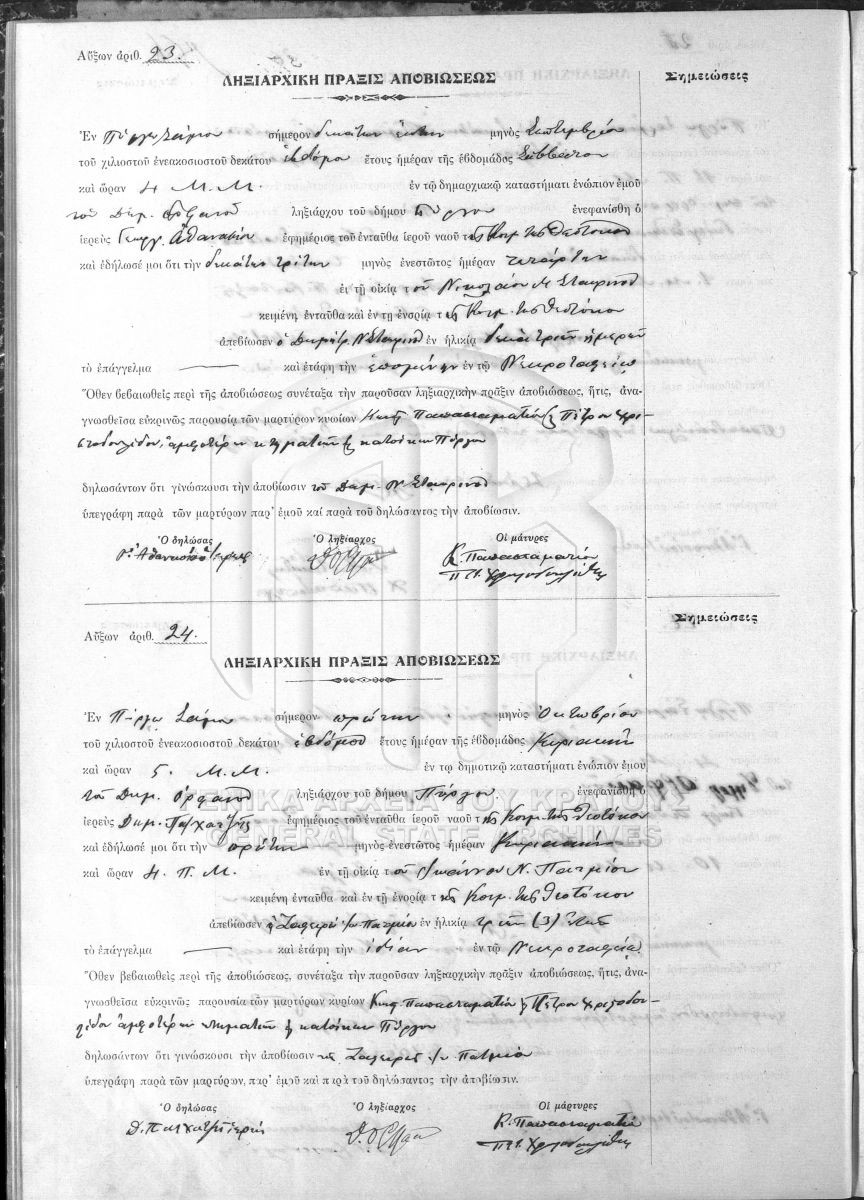 Αὔξων ἀριθ. 23.
ΛΗΞΙΑΡΧΙΚΗ ΠΡΑΞΙΣ ΑΠΟΒΙΩΣΕΩΣ
Σημειώσεις
Ἐν Πύργῳ Σάμου σήμερον δεκάτην ἕκτην μηνὸς Σεπτεμβρίου
τοῦ χιλιοστοῦ ἐνεακοσιοστοῦ δεκάτου ἑβδόμου ἔτους ἡμέραν τῆς ἑβδομάδος Σάββατον
καὶ ὥραν 4 Μ. Μ. ἐν τῷ δημαρχιακῷ καταστήματι ἐνώπιον ἐμοῦ
τοῦ Δημ. Ὀρφανοῦ ληξιάρχου τοῦ δήμου Πύργου ἐνεφανίσθη ὁ
ἱερεὺς Γεωργ. Ἀθανασίου ἐφημέριος τοῦ ἐνταῦθα ἱεροῦ ναοῦ τῆς Κοιμ. τῆς Θεοτόκου
καὶ ἐδήλωσέ μοι ὅτι τὴν δεκάτην τρίτην μηνὸς ἐνεστῶτος ἡμέραν τετάρτην
ἐν τῇ οἰκίᾳ τοῦ Νικολάου Μ. Σταυρινοῦ
κειμένῃ ἐνταῦθα καὶ ἐν τῇ ἐνορίᾳ τῆς Κοιμ. τῆς Θεοτόκου
ἀπεβίωσεν ὁ Δημήτρ. Ν. Σταυρινοῦ ἐν ἡλικίᾳ δεκατριῶν ἡμερῶν
τὸ ἐπάγγελμα — καὶ ἐτάφη τὴν ἑπομένην ἐν τῷ Νεκροταφείῳ
Ὅθεν βεβαιωθεὶς περὶ τῆς ἀποβιώσεως συνέταξα τὴν παροῦσαν ληξιαρχικὴν πρᾶξιν ἀποβιώσεως, ἥτις, ἀνα-
γνωσθεῖσα εὐκρινῶς παρουσίᾳ τῶν μαρτύρων κυρίων Κωστ. Παπασταματίου & Πέτρου Χρι-
στοδουλίδου, ἀμφοτέρων κτηματιῶν & κατοίκων Πύργου
δηλωσάντων ὅτι γινώσκουσι τὴν ἀποβίωσιν τοῦ Δημ. Ν. Σταυρινοῦ
ὑπεγράφη παρὰ τῶν μαρτύρων παρ' ἐμοῦ καὶ παρὰ τοῦ δηλώσαντος τὴν ἀποβίωσιν.
Ὁ δηλώσας Ὁ ληξίαρχος Οἱ μάρτυρες
Κ. Παπασταματίου
Αὔξων ἀριθ. 24.
Σημειώσεις
ΛΗΞΙΑΡΧΙΚΗ ΠΡΑΞΙΣ ΑΠΟΒΙΩΣΕΩΣ
Ἐν Πύργῳ Σάμου σήμερον πρώτην μηνὸς Ὀκτωβρίου
τοῦ χιλιοστοῦ ἐνεακοσιοστοῦ δεκάτου ἑβδόμου ἔτους ἡμέραν τῆς ἑβδομάδος Κυριακὴν
καὶ ὥραν 5. Μ. Μ. ἐν τῷ δημοτικῷ καταστήματι ἐνώπιον ἐμοῦ
τοῦ Δημ. Ὀρφανοῦ ληξιάρχου τοῦ δήμου Πύργου ἐνεφανίσθη ὁ
ἱερεὺς Δημ. Παπχατζῆς ἐφημέριος τοῦ ἐνταῦθα ἱεροῦ ναοῦ τῆς Κοιμ. τῆς Θεοτόκου
ΓΕΝΙΚΑ ΑΡΧΕΙΑ ΤΟΥ ΚΡΑΤΟΥΣ
GENERAL STATE ARCHIVES
καὶ ἐδήλωσέ μοι ὅτι τὴν πρώτην μηνὸς ἐνεστῶτος ἡμέραν Κυριακὴν
καὶ ὥραν 4. Π. Μ. ἐν τῇ οἰκίᾳ τοῦ Ἰωάννου Ν. Πατμίου
κειμένῃ ἐνταῦθα καὶ ἐν τῇ ἐνορίᾳ τῆς Κοιμ. τῆς Θεοτόκου
ἀπεβίωσεν ἡ Ζαφειρὼ Ἰω Πατμίου ἐν ἡλικίᾳ τριῶν (3) ἐτῶν
τὸ ἐπάγγελμα — καὶ ἐτάφη τὴν ἰδίαν ἐν τῷ Νεκροταφείῳ
Ὅθεν βεβαιωθεὶς περὶ τῆς ἀποβιώσεως, συνέταξα τὴν παροῦσαν ληξιαρχικὴν πρᾶξιν ἀποβιώσεως, ἥτις, ἀνα-
γνωσθεῖσα εὐκρινῶς παρουσίᾳ τῶν μαρτύρων κυρίων Κωστ. Παπασταματίου & Πέτρου Χριστοδου-
λίδου ἀμφοτέρων κτηματιῶν & κατοίκων Πύργου
δηλωσάντων ὅτι γινώσκουσι τὴν ἀποβίωσιν τῆς Ζαφειρῶς Ἰω Πατμίου
ὑπεγράφη παρὰ τῶν μαρτύρων, παρ' ἐμοῦ καὶ παρὰ τοῦ δηλώσαντος τὴν ἀποβίωσιν.
Ὁ δηλώσας Ὁ ληξίαρχος Οἱ μάρτυρες
Κ. Παπασταματίου